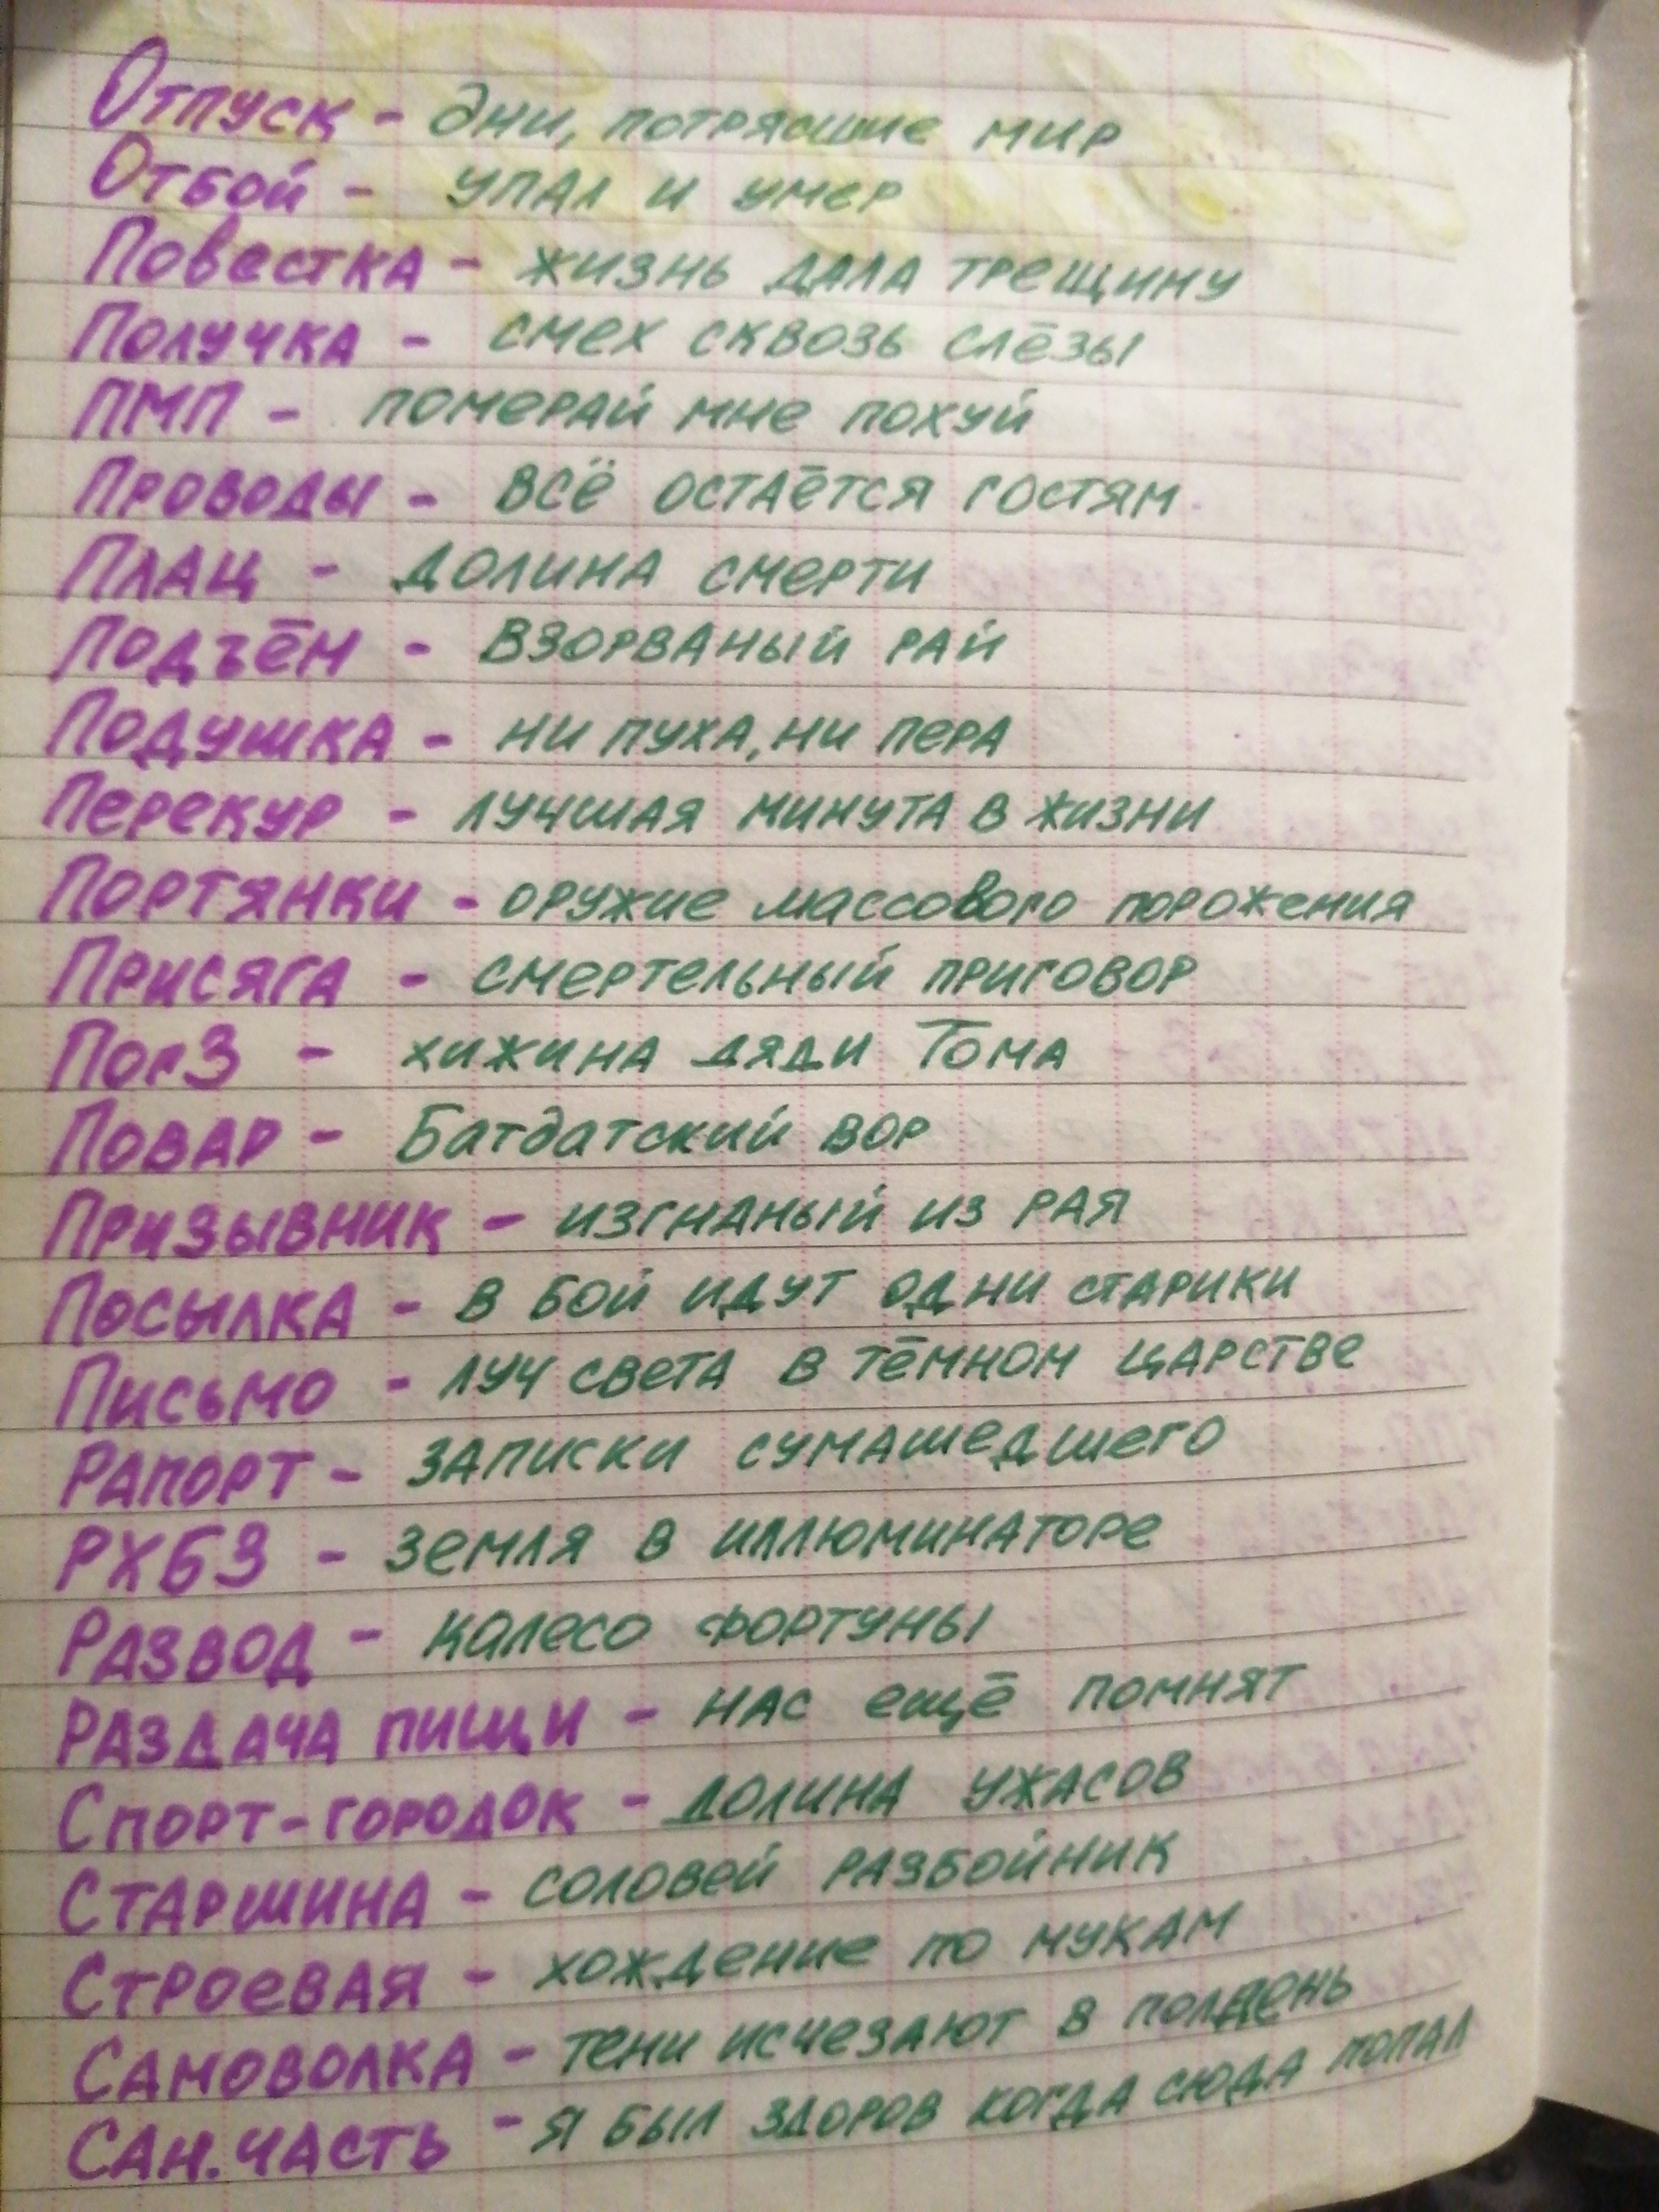 Отпуск - дни, потрясшие мир
Отбой - упал и умер
Повестка - жизнь дала трещину
Получка - смех сквозь слёзы
ПМП - померай мне похуй
Проводы - всё остаётся гостям
Плац - долина смерти
Подъём - взорваный рай
Подушка - ни пуха, ни пера
Перекур - лучшая минута в жизни
Портянки - оружие массового порожения
Присяга - смертельный приговор
ПогЗ - хижина дяди Тома
Повар - Батдатский вор
Призывник - изгнаный из рая
Посылка - в бой идут одни старики
Письмо - луч света в тёмном царстве
Рапорт - записки сумашедшего
РХБЗ - земля в иллюминаторе
Развод - колесо фортуны
Раздача пищи - нас ещё помнят
Спорт-городок - долина ужасов
Старшина - соловей разбойник
Строевая - хождение по мукам
Самоволка - тени исчезают в полдень
Сан.часть - я был здоров когда сюда попал